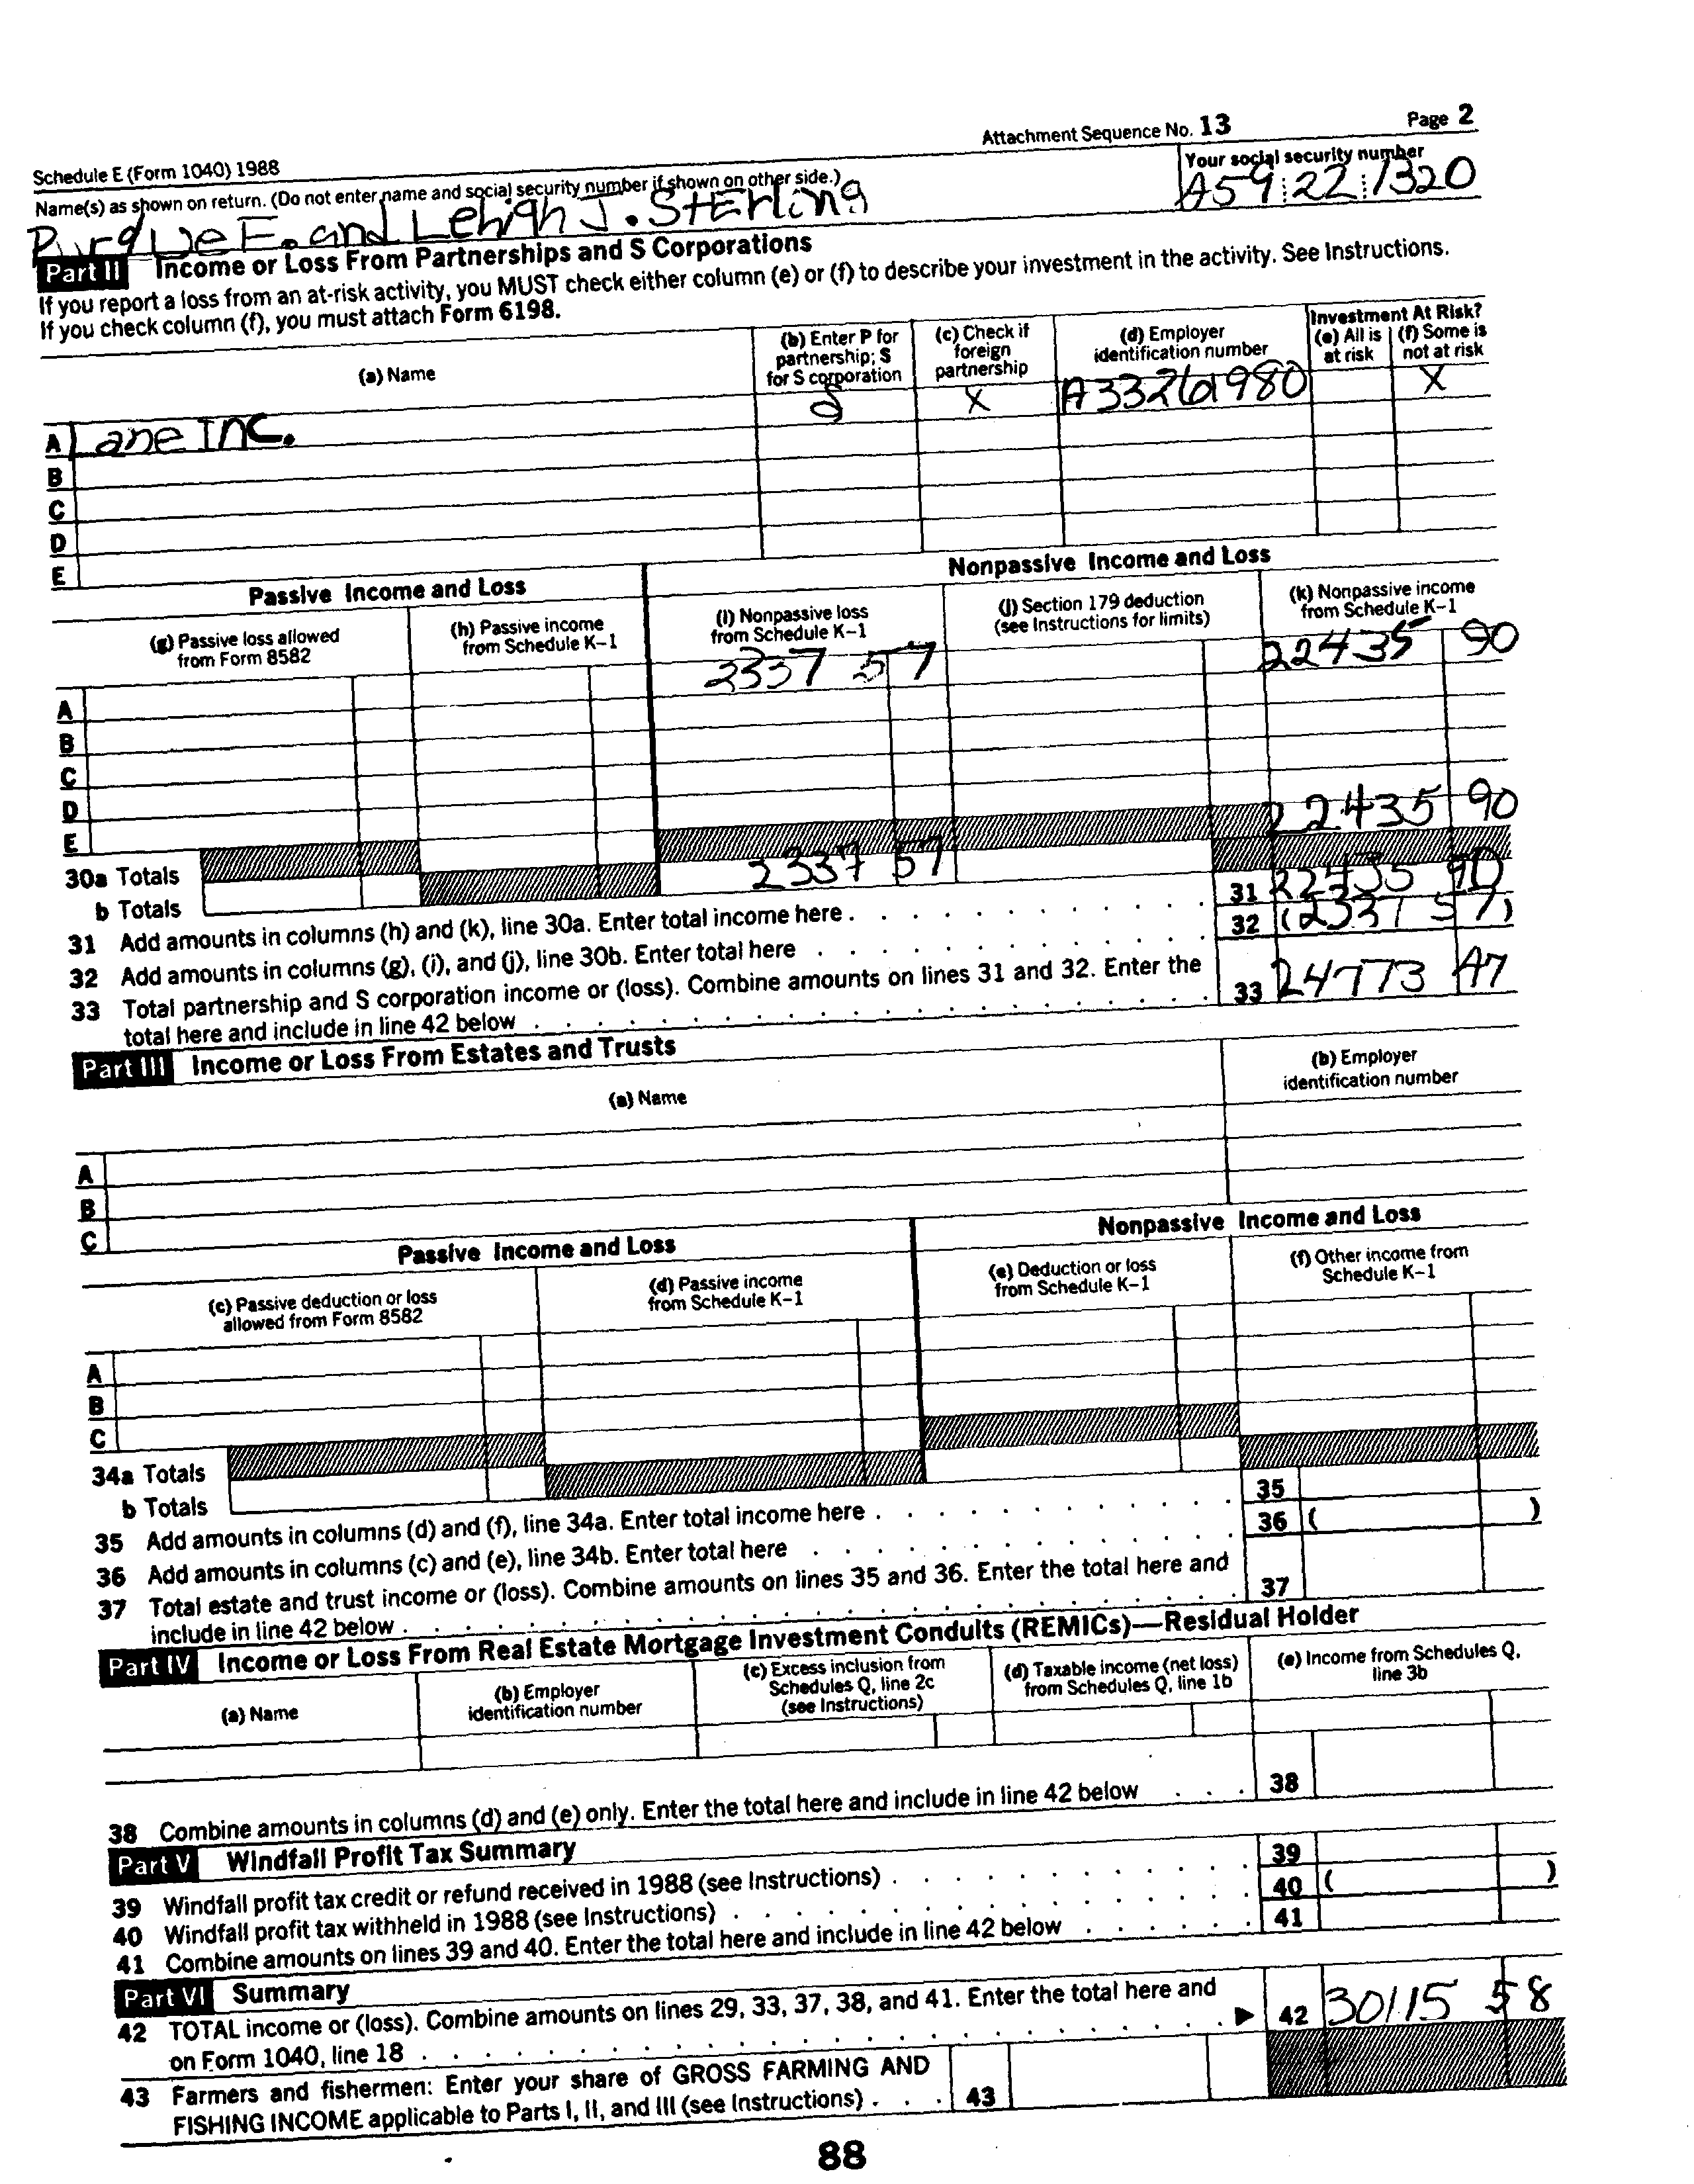 Attachment Sequence No. 13 Page 2
Schedule E (Form 1040) 1988
Name(s) as shown on return. (Do not enter name and social security number if shown on other side.) Your social security number
Purdue E. and Lehigh J. Sterling A59 22 1320
Part II Income or Loss From Partnerships and S Corporations
If you report a loss from an at-risk activity, you MUST check either column (e) or (f) to describe your investment in the activity. See Instructions.
If you check column (f), you must attach Form 6198.
(a) Name (b) Enter P for partnership; S for S corporation (c) Check if foreign partnership (d) Employer identification number Investment At Risk? (e) All is at risk (f) Some is not at risk
A Lane Inc. S X A33261980 X
B
C
D
E
Passive Income and Loss Nonpassive Income and Loss
(g) Passive loss allowed from Form 8582 (h) Passive income from Schedule K-1 (i) Nonpassive loss from Schedule K-1 (j) Section 179 deduction (see Instructions for limits) (k) Nonpassive income from Schedule K-1
A 2337 57 22435 90
B
C
D
E
30a Totals 22435 90
b Totals 2337 57
31 Add amounts in columns (h) and (k), line 30a. Enter total income here 31 22435 90
32 Add amounts in columns (g), (i), and (j), line 30b. Enter total here 32 (2337 57)
33 Total partnership and S corporation income or (loss). Combine amounts on lines 31 and 32. Enter the
total here and include in line 42 below 33 24773 47
Part III Income or Loss From Estates and Trusts
(a) Name (b) Employer identification number
A
B
C
Passive Income and Loss Nonpassive Income and Loss
(c) Passive deduction or loss allowed from Form 8582 (d) Passive income from Schedule K-1 (e) Deduction or loss from Schedule K-1 (f) Other income from Schedule K-1
A
B
C
34a Totals
b Totals
35 Add amounts in columns (d) and (f), line 34a. Enter total income here 35
36 Add amounts in columns (c) and (e), line 34b. Enter total here 36 ( )
37 Total estate and trust income or (loss). Combine amounts on lines 35 and 36. Enter the total here and
include in line 42 below 37
Part IV Income or Loss From Real Estate Mortgage Investment Conduits (REMICs)—Residual Holder
(a) Name (b) Employer identification number (c) Excess inclusion from Schedules Q, line 2c (see Instructions) (d) Taxable income (net loss) from Schedules Q, line 1b (e) Income from Schedules Q, line 3b
38 Combine amounts in columns (d) and (e) only. Enter the total here and include in line 42 below 38
Part V Windfall Profit Tax Summary
39 Windfall profit tax credit or refund received in 1988 (see Instructions) 39
40 Windfall profit tax withheld in 1988 (see Instructions) 40 ( )
41 Combine amounts on lines 39 and 40. Enter the total here and include in line 42 below 41
Part VI Summary
42 TOTAL income or (loss). Combine amounts on lines 29, 33, 37, 38, and 41. Enter the total here and
on Form 1040, line 18 ▶ 42 30115 58
43 Farmers and fishermen: Enter your share of GROSS FARMING AND
FISHING INCOME applicable to Parts I, II, and III (see Instructions) 43
88